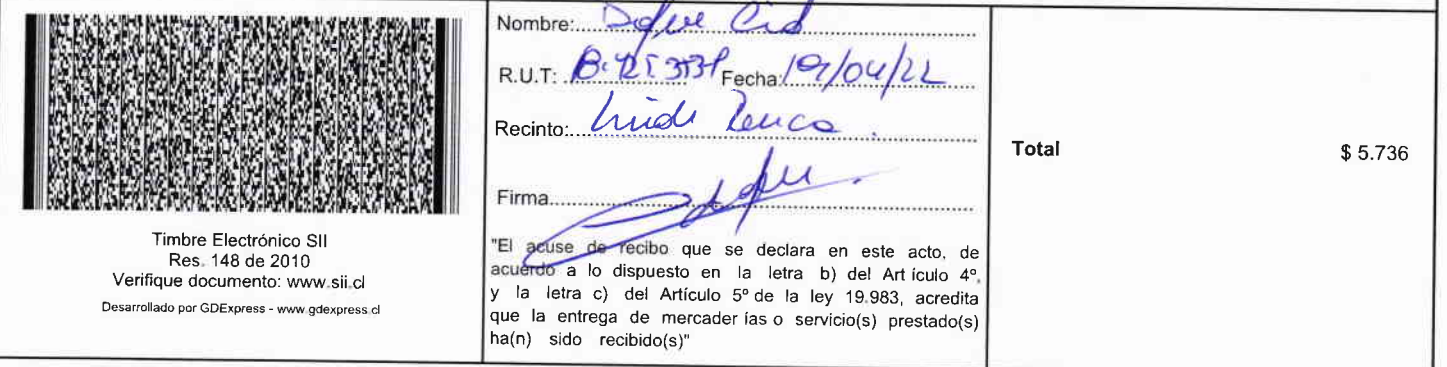 Timbre Electrónico SII
Res. 148 de 2010
Verifique documento: www.sii.cl
Desarrollado por GDExpress - www.gdexpress.cl
Nombre: Cid
R.U.T: Fecha: 19/04/22
Recinto: Renca
Firma
"El acuse de recibo que se declara en este acto, de
acuerdo a lo dispuesto en la letra b) del Art ículo 4º,
y la letra c) del Artículo 5º de la ley 19.983, acredita
que la entrega de mercader ías o servicio(s) prestado(s)
ha(n) sido recibido(s)"
Total $ 5.736